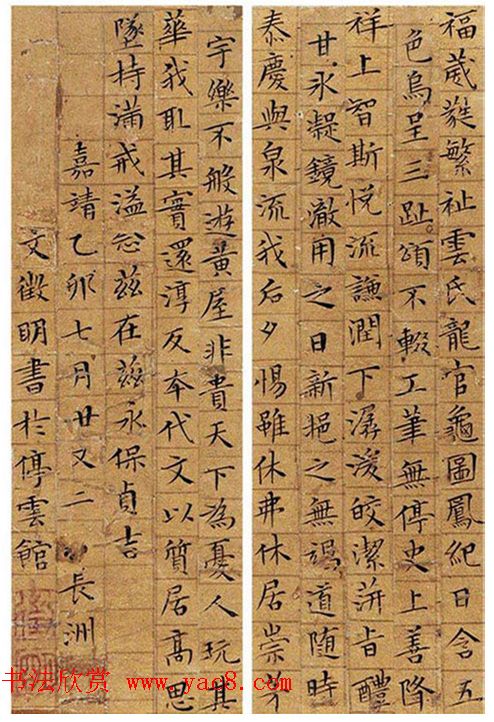 福葳蕤繁祉雲氏龍官龜圖鳳紀日含五
色烏呈三趾頌不輟工筆無停史上善降
祥上智斯悅流謙潤下潺湲皎潔蓱旨醴
甘氷凝鏡澈用之日新挹之無竭道随時
泰慶與泉流我后夕惕雖休弗休居崇茅
宇樂不般遊黃屋非貴天下為憂人玩其
華我取其實還淳反本代文以質居高思
墜持滿戒溢念茲在茲永保貞吉
嘉靖乙卯七月廿又二日長洲
文徵明書於停雲館
书法欣赏 www.yac8.com